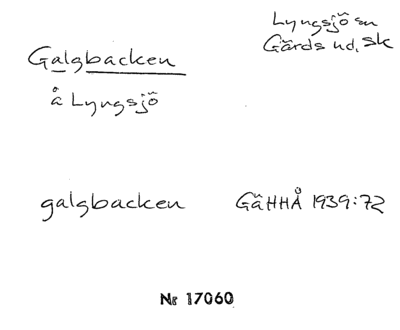 Lyngsjö sn
Gärds hd, Sk
Galgbacken
å Lyngsjö
galgbacken GäHHÅ 1939:72
Nr 17060